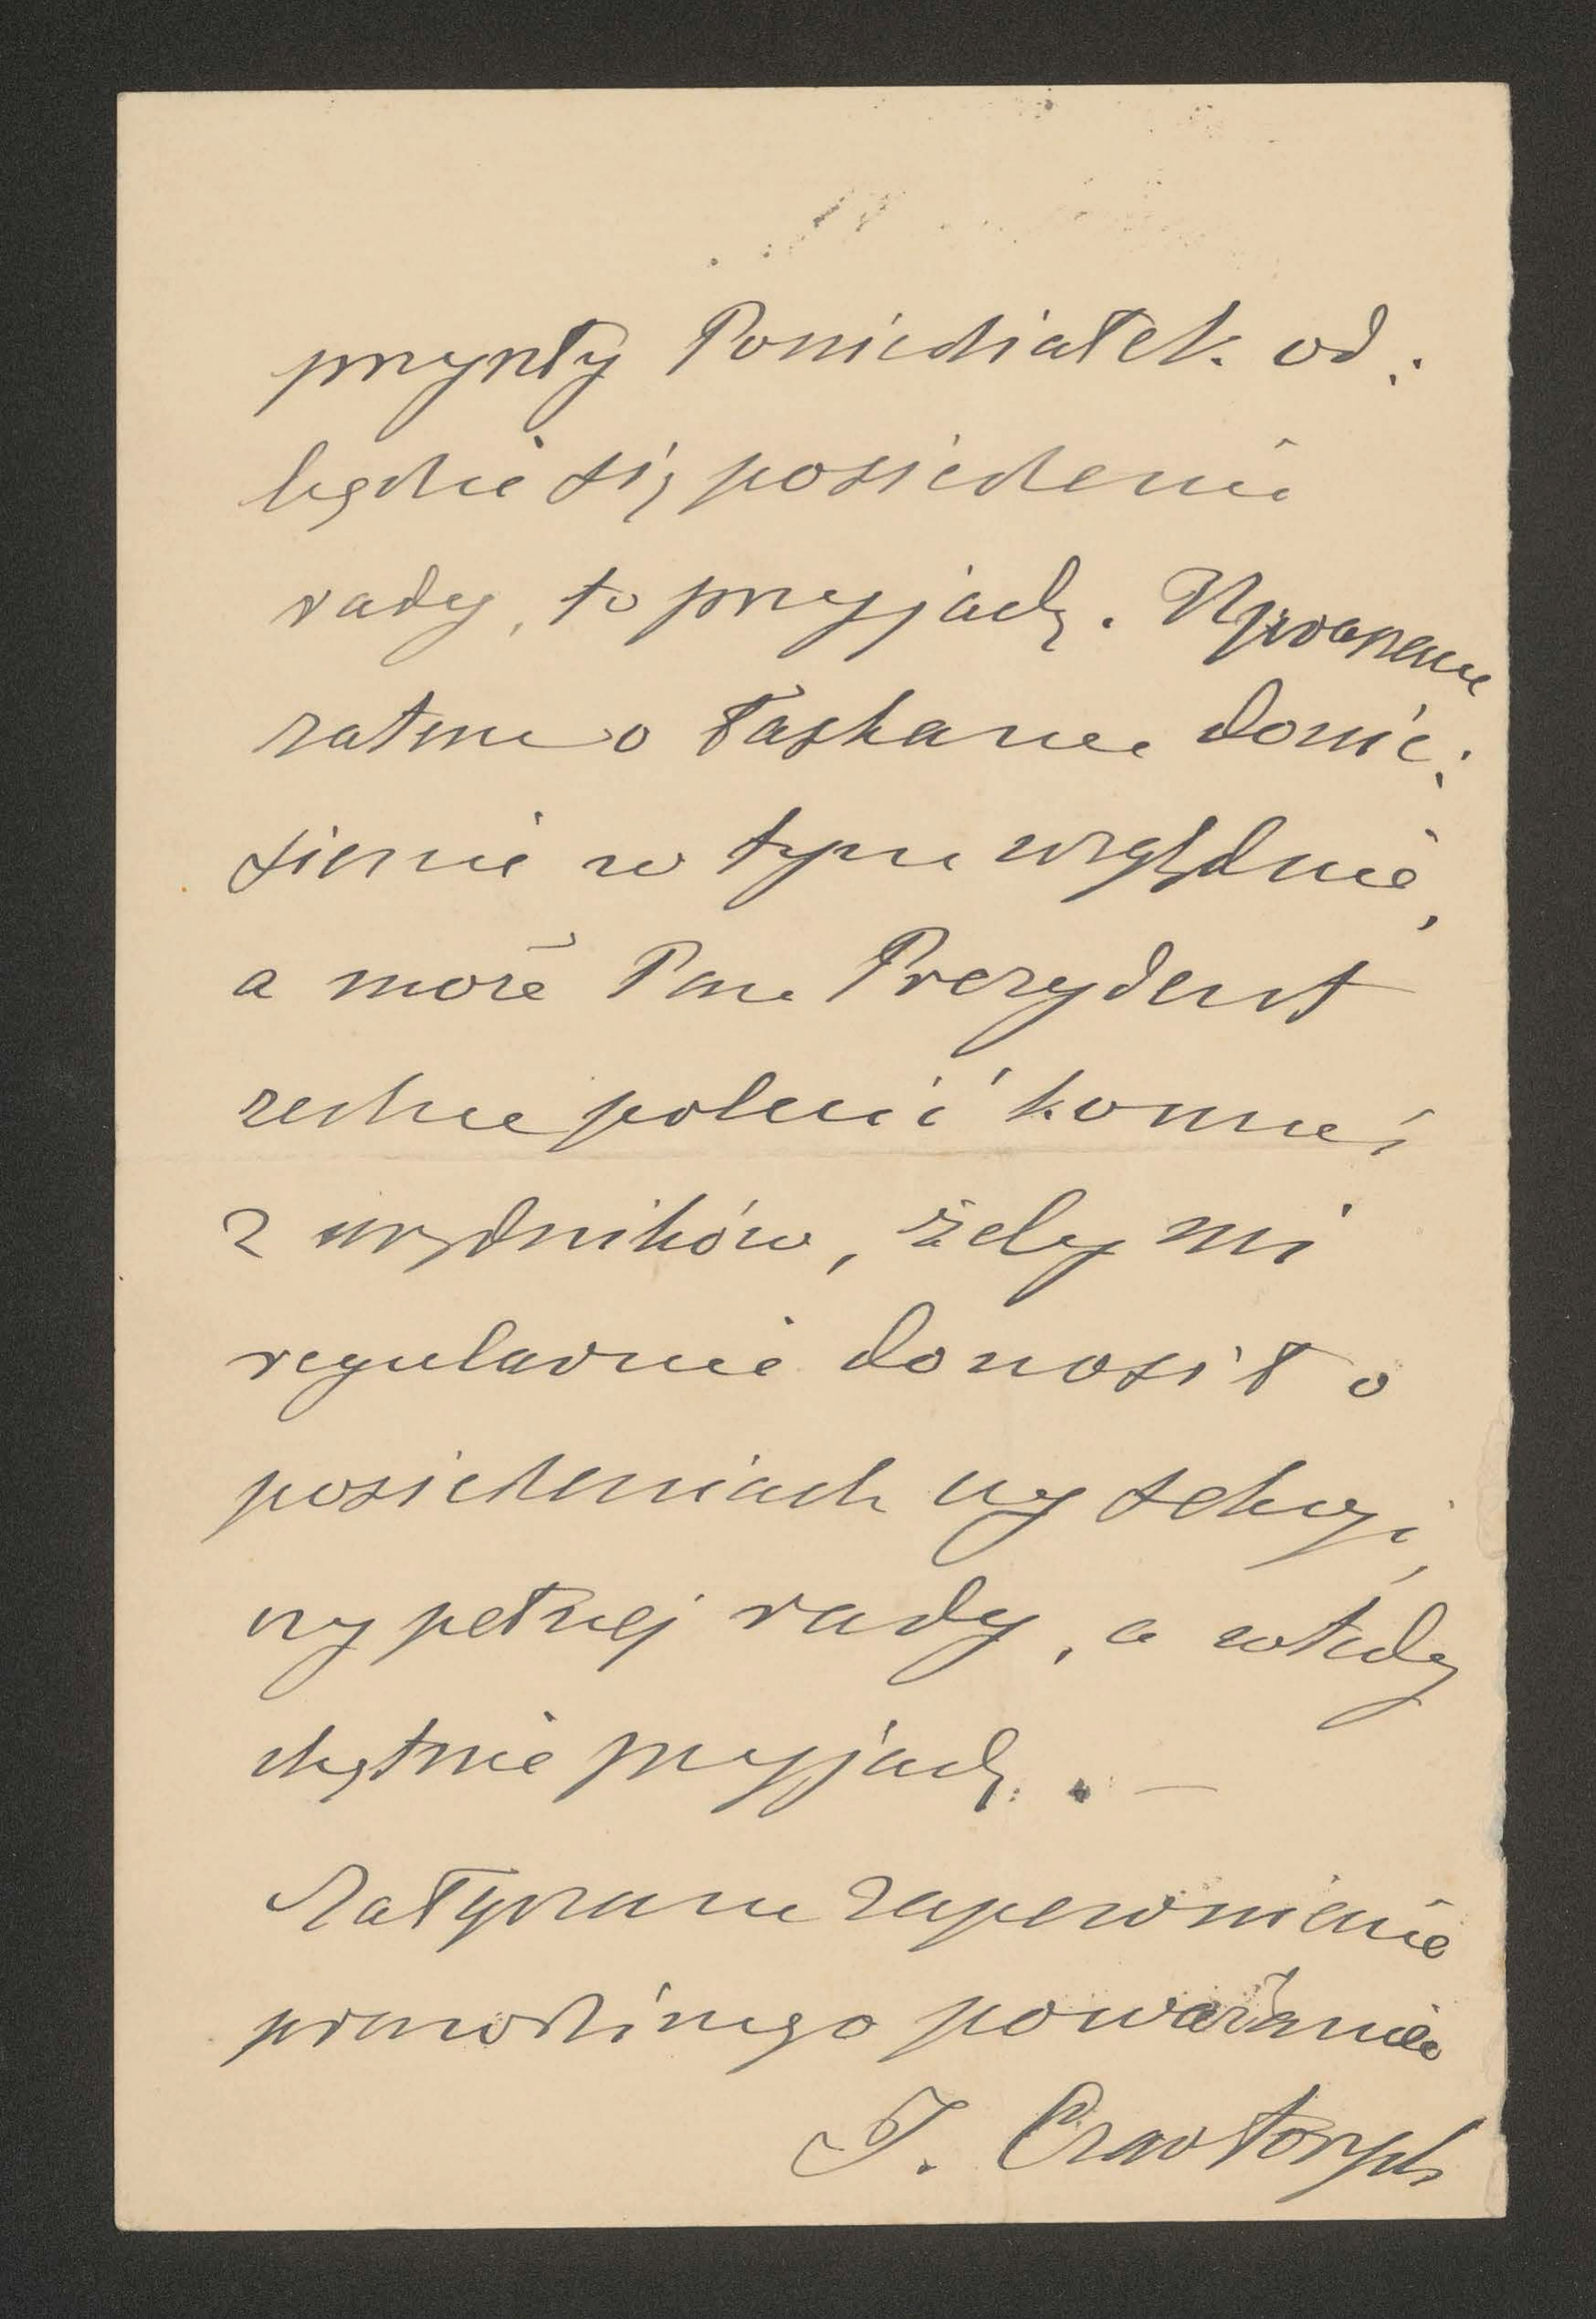 przyszły Poniedziałek od:
będzie się posiedzenie
rady, to przyjadę. Upraszam
zatem o łaskawe donie:
sienie w tym względzie,
a może Pan Prezydent
zechce polecić komuś
z urzędników, żeby mi
regularnie donosił o
posiedzeniach czy sekcyi,
czy pełnej rady, a wtedy
chętnie przyjadę. —
Załączam zapewnienie
prawdziwego poważania